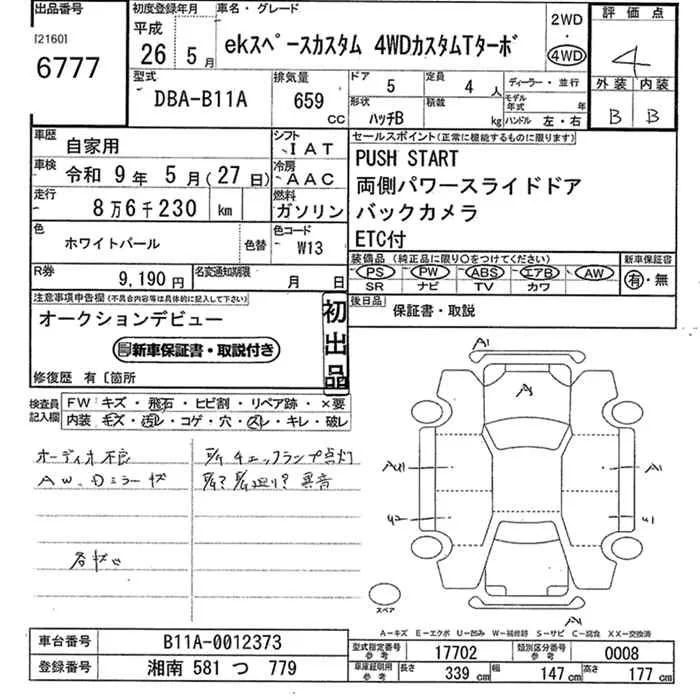 出品番号
[2160]
6777
初度登録年月
平成
26 5月
車名・グレード
ekスペースカスタム 4WDカスタムTターボ
2WD
・
4WD
評価点
4
外装 内装
B B
型式
DBA-B11A
排気量
659
CC
ドア
5
定員
4人
形状
ハッチB
積載
kg
ディーラー・並行
モデル年式 年
ハンドル 左・右
車歴
自家用
シフト
IAT
車検
令和 9年 5月(27日)
冷房
AAC
走行
8万6千230 km
燃料
ガソリン
色
ホワイトパール
色替
色コード
W13
R券
9,190円
名変通知期限
月 日
セールスポイント(正常に機能するものに限ります)
PUSH START
両側パワースライドドア
バックカメラ
ETC付
装備品(純正品に限り○をつけてください)
PS PW ABS エアB AW
SR ナビ TV カワ
新車保証書
有・無
後日品
保証書・取説
注意事項申告欄(不具合内容等は具体的に記入して下さい)
オークションデビュー
新車保証書・取説付き
初出品
修復歴 有〔箇所
検査員記入欄
FW キズ・飛石・ヒビ割・リペア跡・×要
内装 キズ・汚レ・コゲ・穴・スレ・キレ・破レ
オーディオ不良
AW、Dミラーキズ
チェックランプ点灯
異音
A1
A
A1
スペア
A-キズ E-エクボ U-凹み W-補修跡 S-サビ C-腐食 XX-交換済
車台番号
B11A-0012373
登録番号
湘南 581 つ 779
型式指定番号
参考
17702
類別区分番号
参考
0008
車庫証明用
参考
長さ 339cm 幅 147cm 高さ 177cm